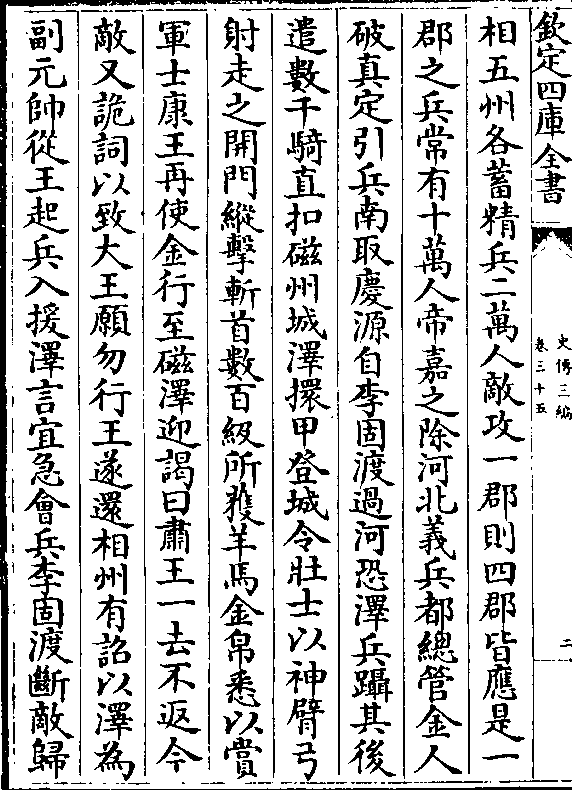 欽定四庫全書
史傳三編
卷三十五
二
相五州各蓄精兵二萬人敵攻一郡則四郡皆應是一
郡之兵常有十萬人帝嘉之除河北義兵都總管金人
破真定引兵南取慶源自李固渡過河恐澤兵躡其後
遣數千騎直扣磁州城澤擐甲登城令壯士以神臂弓
射走之開門縱擊斬首數百級所獲羊馬金帛悉以賞
軍士康王再使金行至磁澤迎謁曰肅王一去不返今
敵又詭詞以致大王願勿行王遂還相州有詔以澤為
副元帥從王起兵入援澤言宜急會兵李固渡斷敵歸